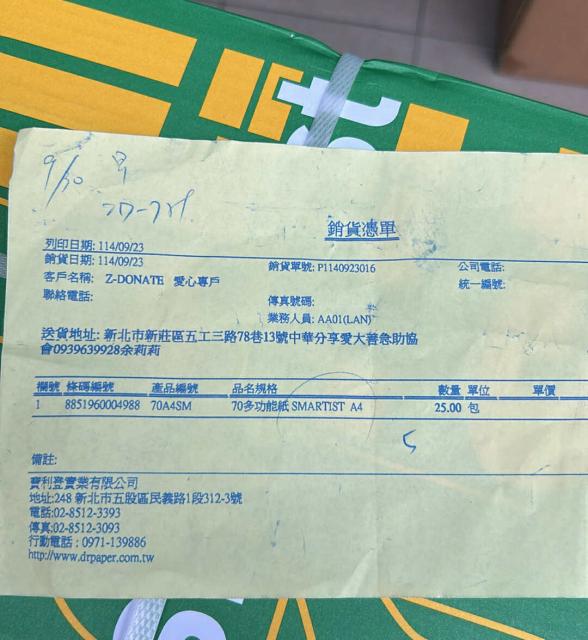 9/30 早
銷貨憑單
列印日期: 114/09/23
銷貨日期: 114/09/23 銷貨單號: P1140923016 公司電話:
客戶名稱: Z-DONATE 愛心專戶 統一編號:
聯絡電話: 傳真號碼:
業務人員: AA01(LAN)
送貨地址: 新北市新莊區五工三路78巷13號中華分享愛大善急助協
會0939639928余莉莉
欄號 條碼編號 產品編號 品名規格 數量 單位 單價
1 8851960004988 70A4SM 70多功能紙 SMARTIST A4 25.00 包
備註:
寶利登實業有限公司
地址:248 新北市五股區民義路1段312-3號
電話:02-8512-3393
傳真:02-8512-3093
行動電話 : 0971-139886
http://www.drpaper.com.tw